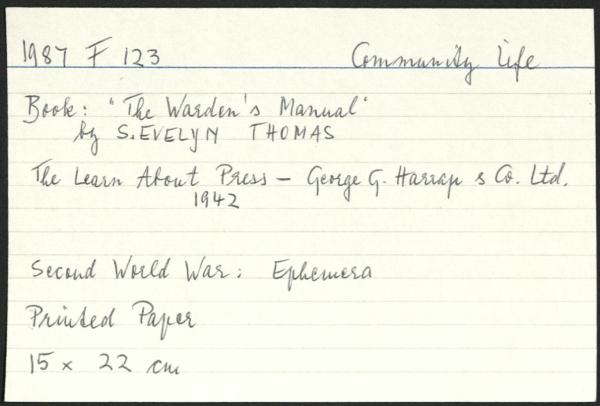 1987 F 123 Community Life
Book: "The Warden's Manual"
by S. EVELYN THOMAS
The Learn About Press – George G. Harrap & Co. Ltd.
1942
Second World War: Ephemera
Printed Paper
15 x 22 cm